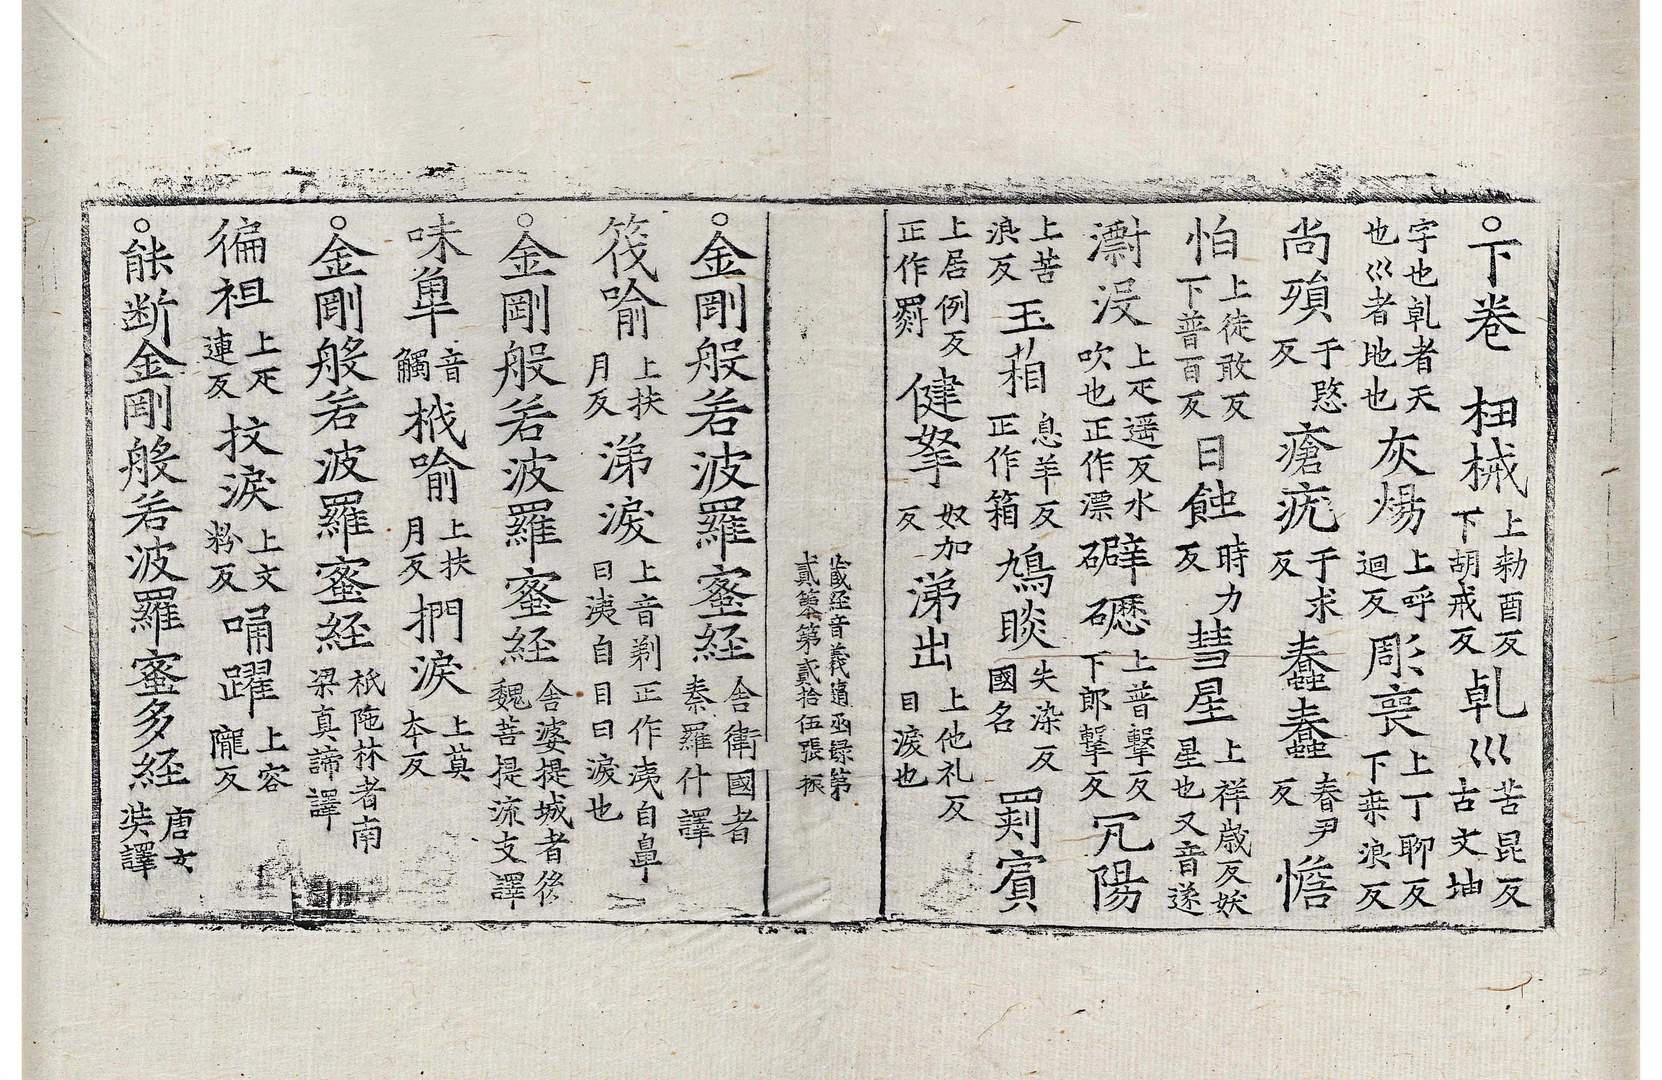 ○下卷 杻械 上勑酉反下胡戒反 乹巛 苦昆反古文坤
字也乹者天也巛者地也 灰煬 上呼迴反 彫喪 上丁聊反下桒浪反
尚殞 于愍反 瘡疣 于求反 蠢蠢 春尹反 憺
怕 上徒敢反下普百反 日蝕 時力反 彗星 上祥歳反妖星也又音遂
灪沒 上疋遥反水吹也正作漂 礔礰 上普擊反下郎擊反 亢陽
上苦浪反 玉葙 息羊反正作箱 鳩睒 失染反國名 罽賓
上居例反正作罽 健拏 奴加反 涕出 上他礼反目淚也
藏经音義随函録第
貳第貳拾伍張 振
○金剛般若波羅蜜经 舍衛國者秦羅什譯
筏喻 上扶月反 涕淚 上音剃正作洟自鼻曰洟自目曰淚也
○金剛般若波羅蜜経 舍婆提城者後魏菩提流支譯
味 音觸 栰喻 上扶月反 捫淚 上莫夲反
○金剛般若波羅蜜経 祇陁林者南梁真諦譯
徧祖 上疋連反 抆淚 上文粉反 踊躍 上容隴反
○能断金剛般若波羅蜜多経 唐玄奘譯